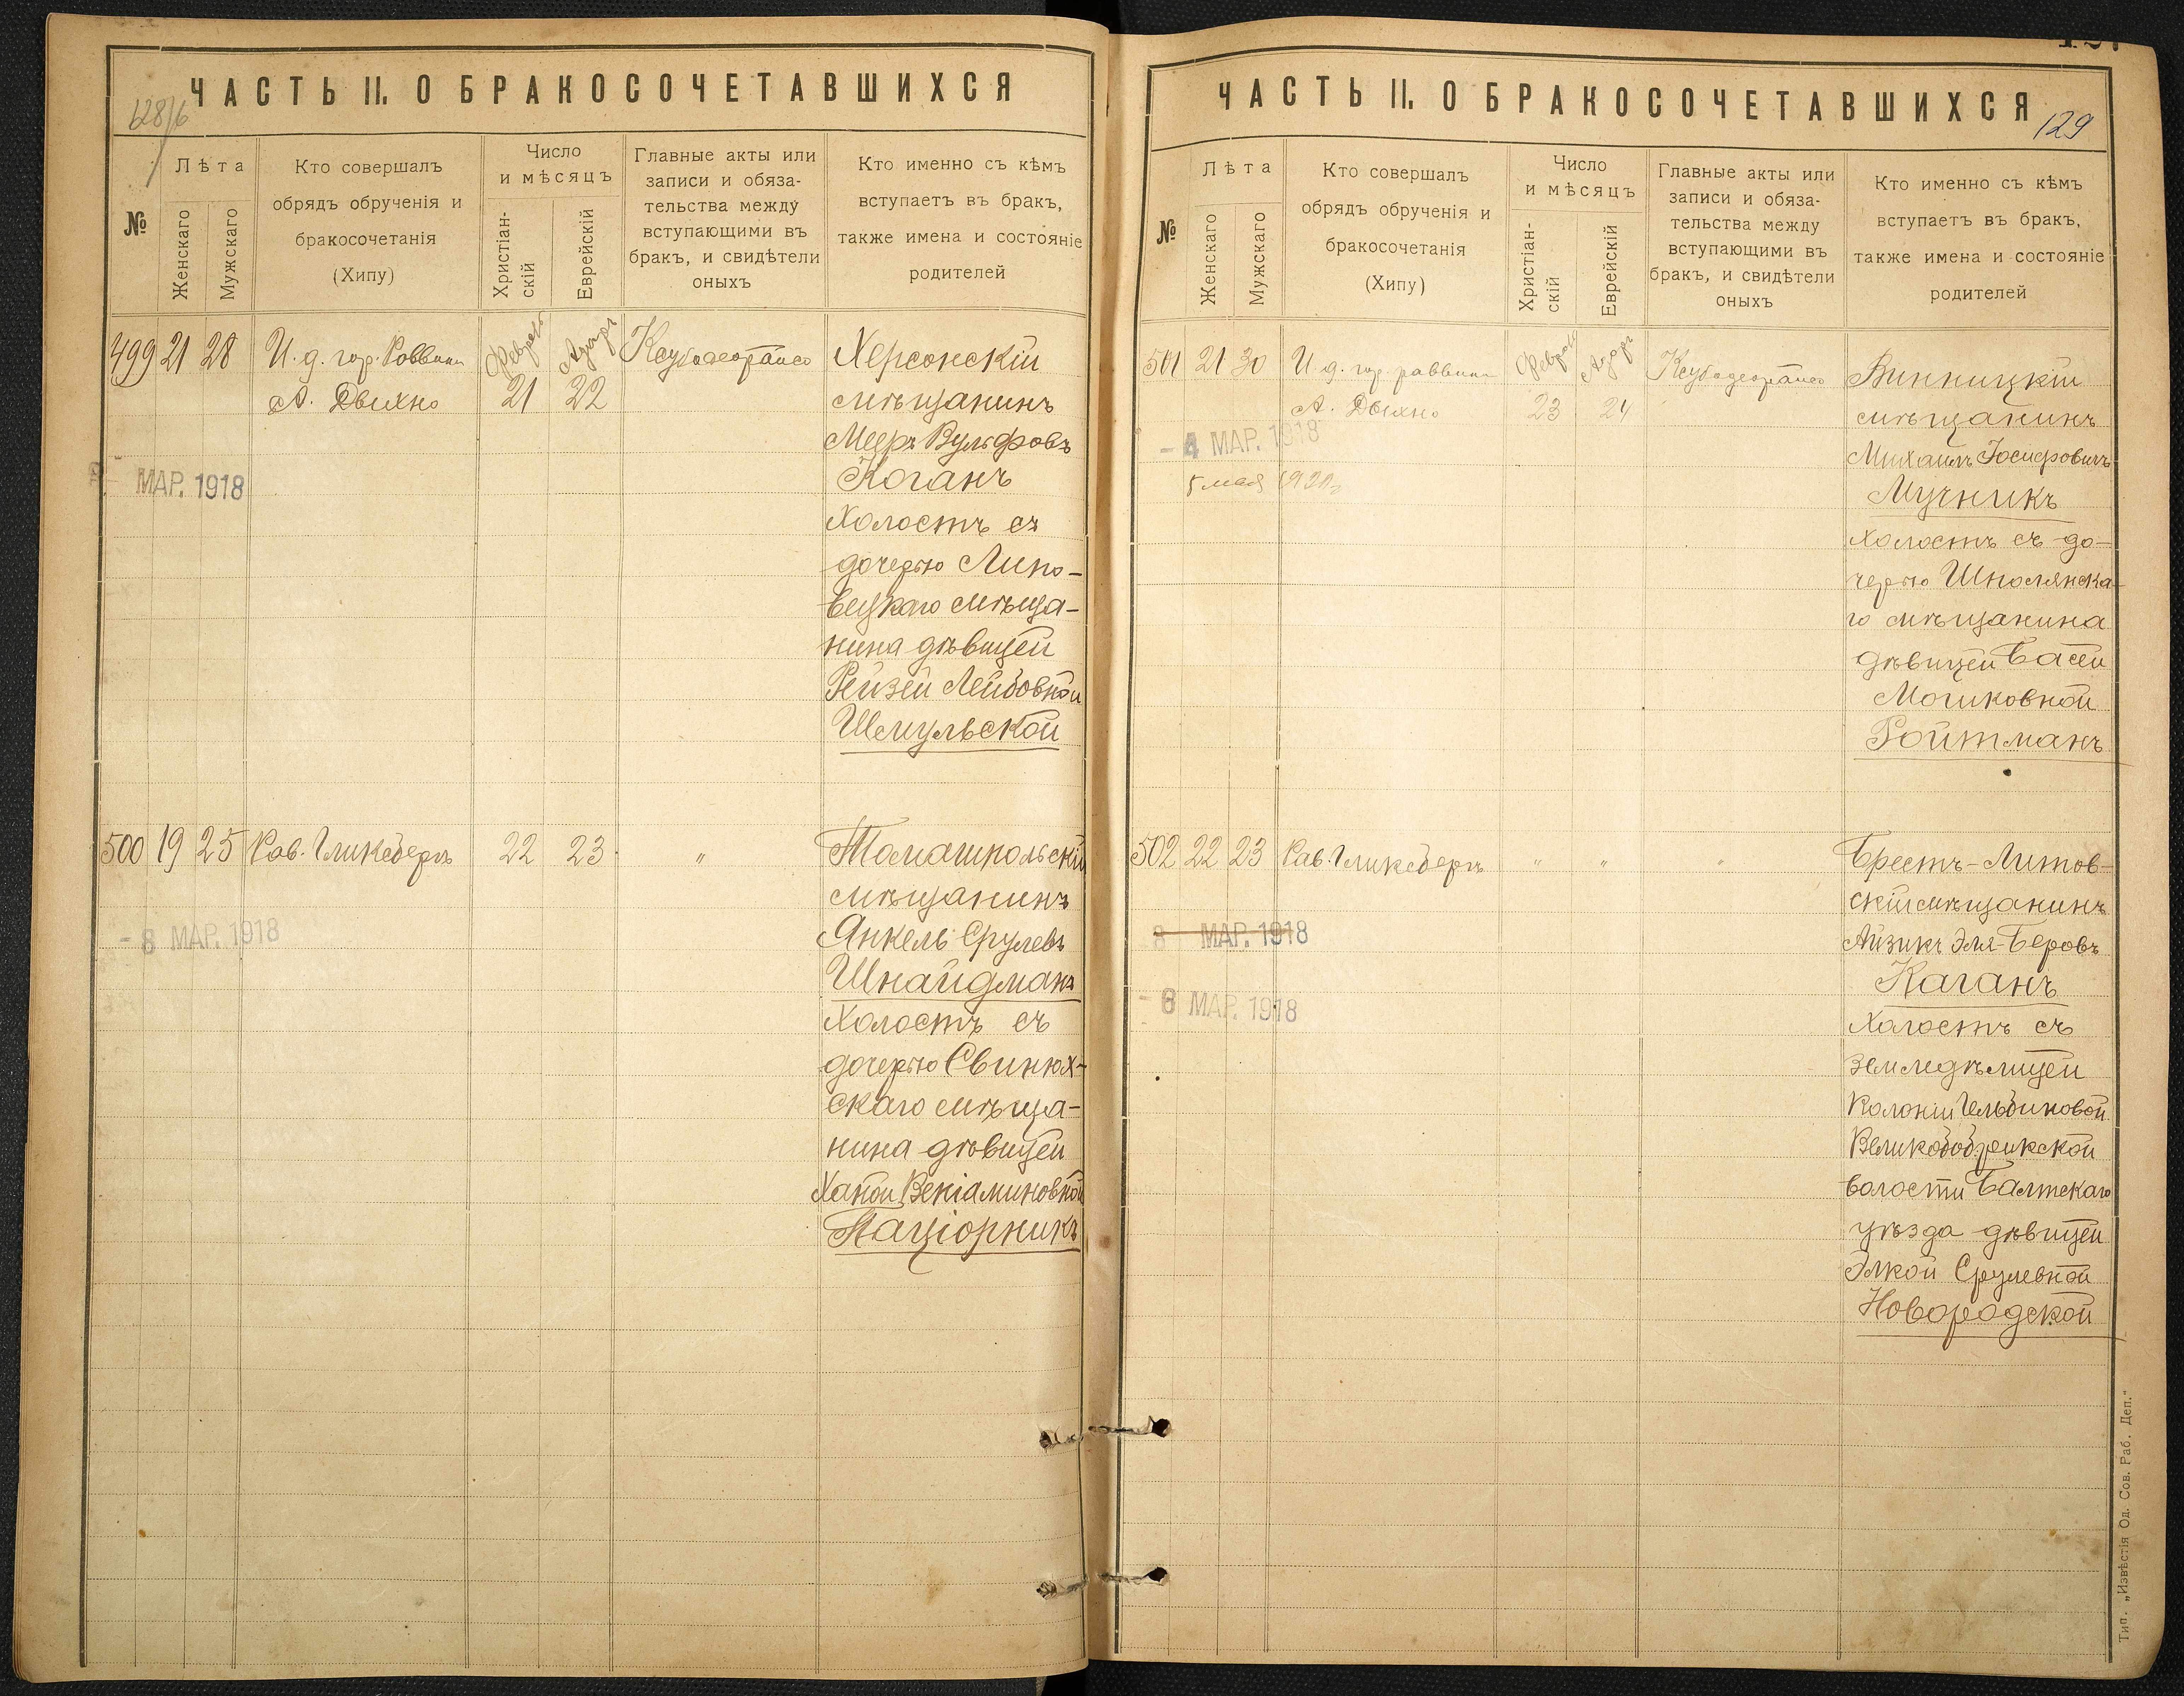 ЧАСТЬ II. О БРАКОСОЧЕТАВШИХСЯ
№
Лѣта
Женскаго
Мужскаго
Кто совершалъ
обрядъ обрученія и
бракосочетанія
(Хипу)
Число
и мѣсяцъ
Христіан-
скій
Еврейскій
Главные акты или
записи и обяза-
тельства между
вступающими въ
бракъ, и свидѣтели
оныхъ
Кто именно съ кѣмъ
вступаетъ въ бракъ,
также имена и состояніе
родителей
499 21 28 И. д. гор. Раввина
А. Дыхно
Февраль
21
Адаръ
22
Херсонскій
мѣщанинъ
Мееръ Вульфовъ
Коганъ
холостъ съ
дочерью Липо-
вецкаго мѣща-
нина дѣвицей
Рейзей Лейбовной
Шмульской
МАР. 1918
500 19 25 Рав. Гликсбергъ 22 23 "
Томашпольскій
мѣщанинъ
Янкель Срулевъ
Шнайдманъ
холостъ съ
дочерью Свинюх-
скаго мѣща-
нина дѣвицей
Ханой Веніаминовной
Паціорникъ
- 8 МАР. 1918
ЧАСТЬ II. О БРАКОСОЧЕТАВШИХСЯ
129
№
Лѣта
Женскаго
Мужскаго
Кто совершалъ
обрядъ обрученія и
бракосочетанія
(Хипу)
Число
и мѣсяцъ
Христіан-
скій
Еврейскій
Главные акты или
записи и обяза-
тельства между
вступающими въ
бракъ, и свидѣтели
оныхъ
Кто именно съ кѣмъ
вступаетъ въ бракъ,
также имена и состояніе
родителей
501 21 30 И. д. гор. раввина
А. Дыхно
Февраль
23
Адаръ
24
Винницкій
мѣщанинъ
Михаилъ Іосифовичъ
Мучникъ
холостъ съ до-
черью Шполянска-
го мѣщанина
дѣвицей Басей
Мошковной
Ройтманъ
- 4 МАР. 1918
5 мая
502 22 23 Рав. Гликсбергъ " " "
Брестъ-Литов-
скій мѣщанинъ
Айзикъ Эля-Беровъ
Каганъ
холостъ съ
земледѣлицей
колоніи Гельбиновой
волости Балтскаго
уѣзда дѣвицей
Элкой Срулевной
Новородской
8 МАР. 1918
- 8 МАР. 1918
Тип. „Извѣстія Од. Сов. Раб. Деп."